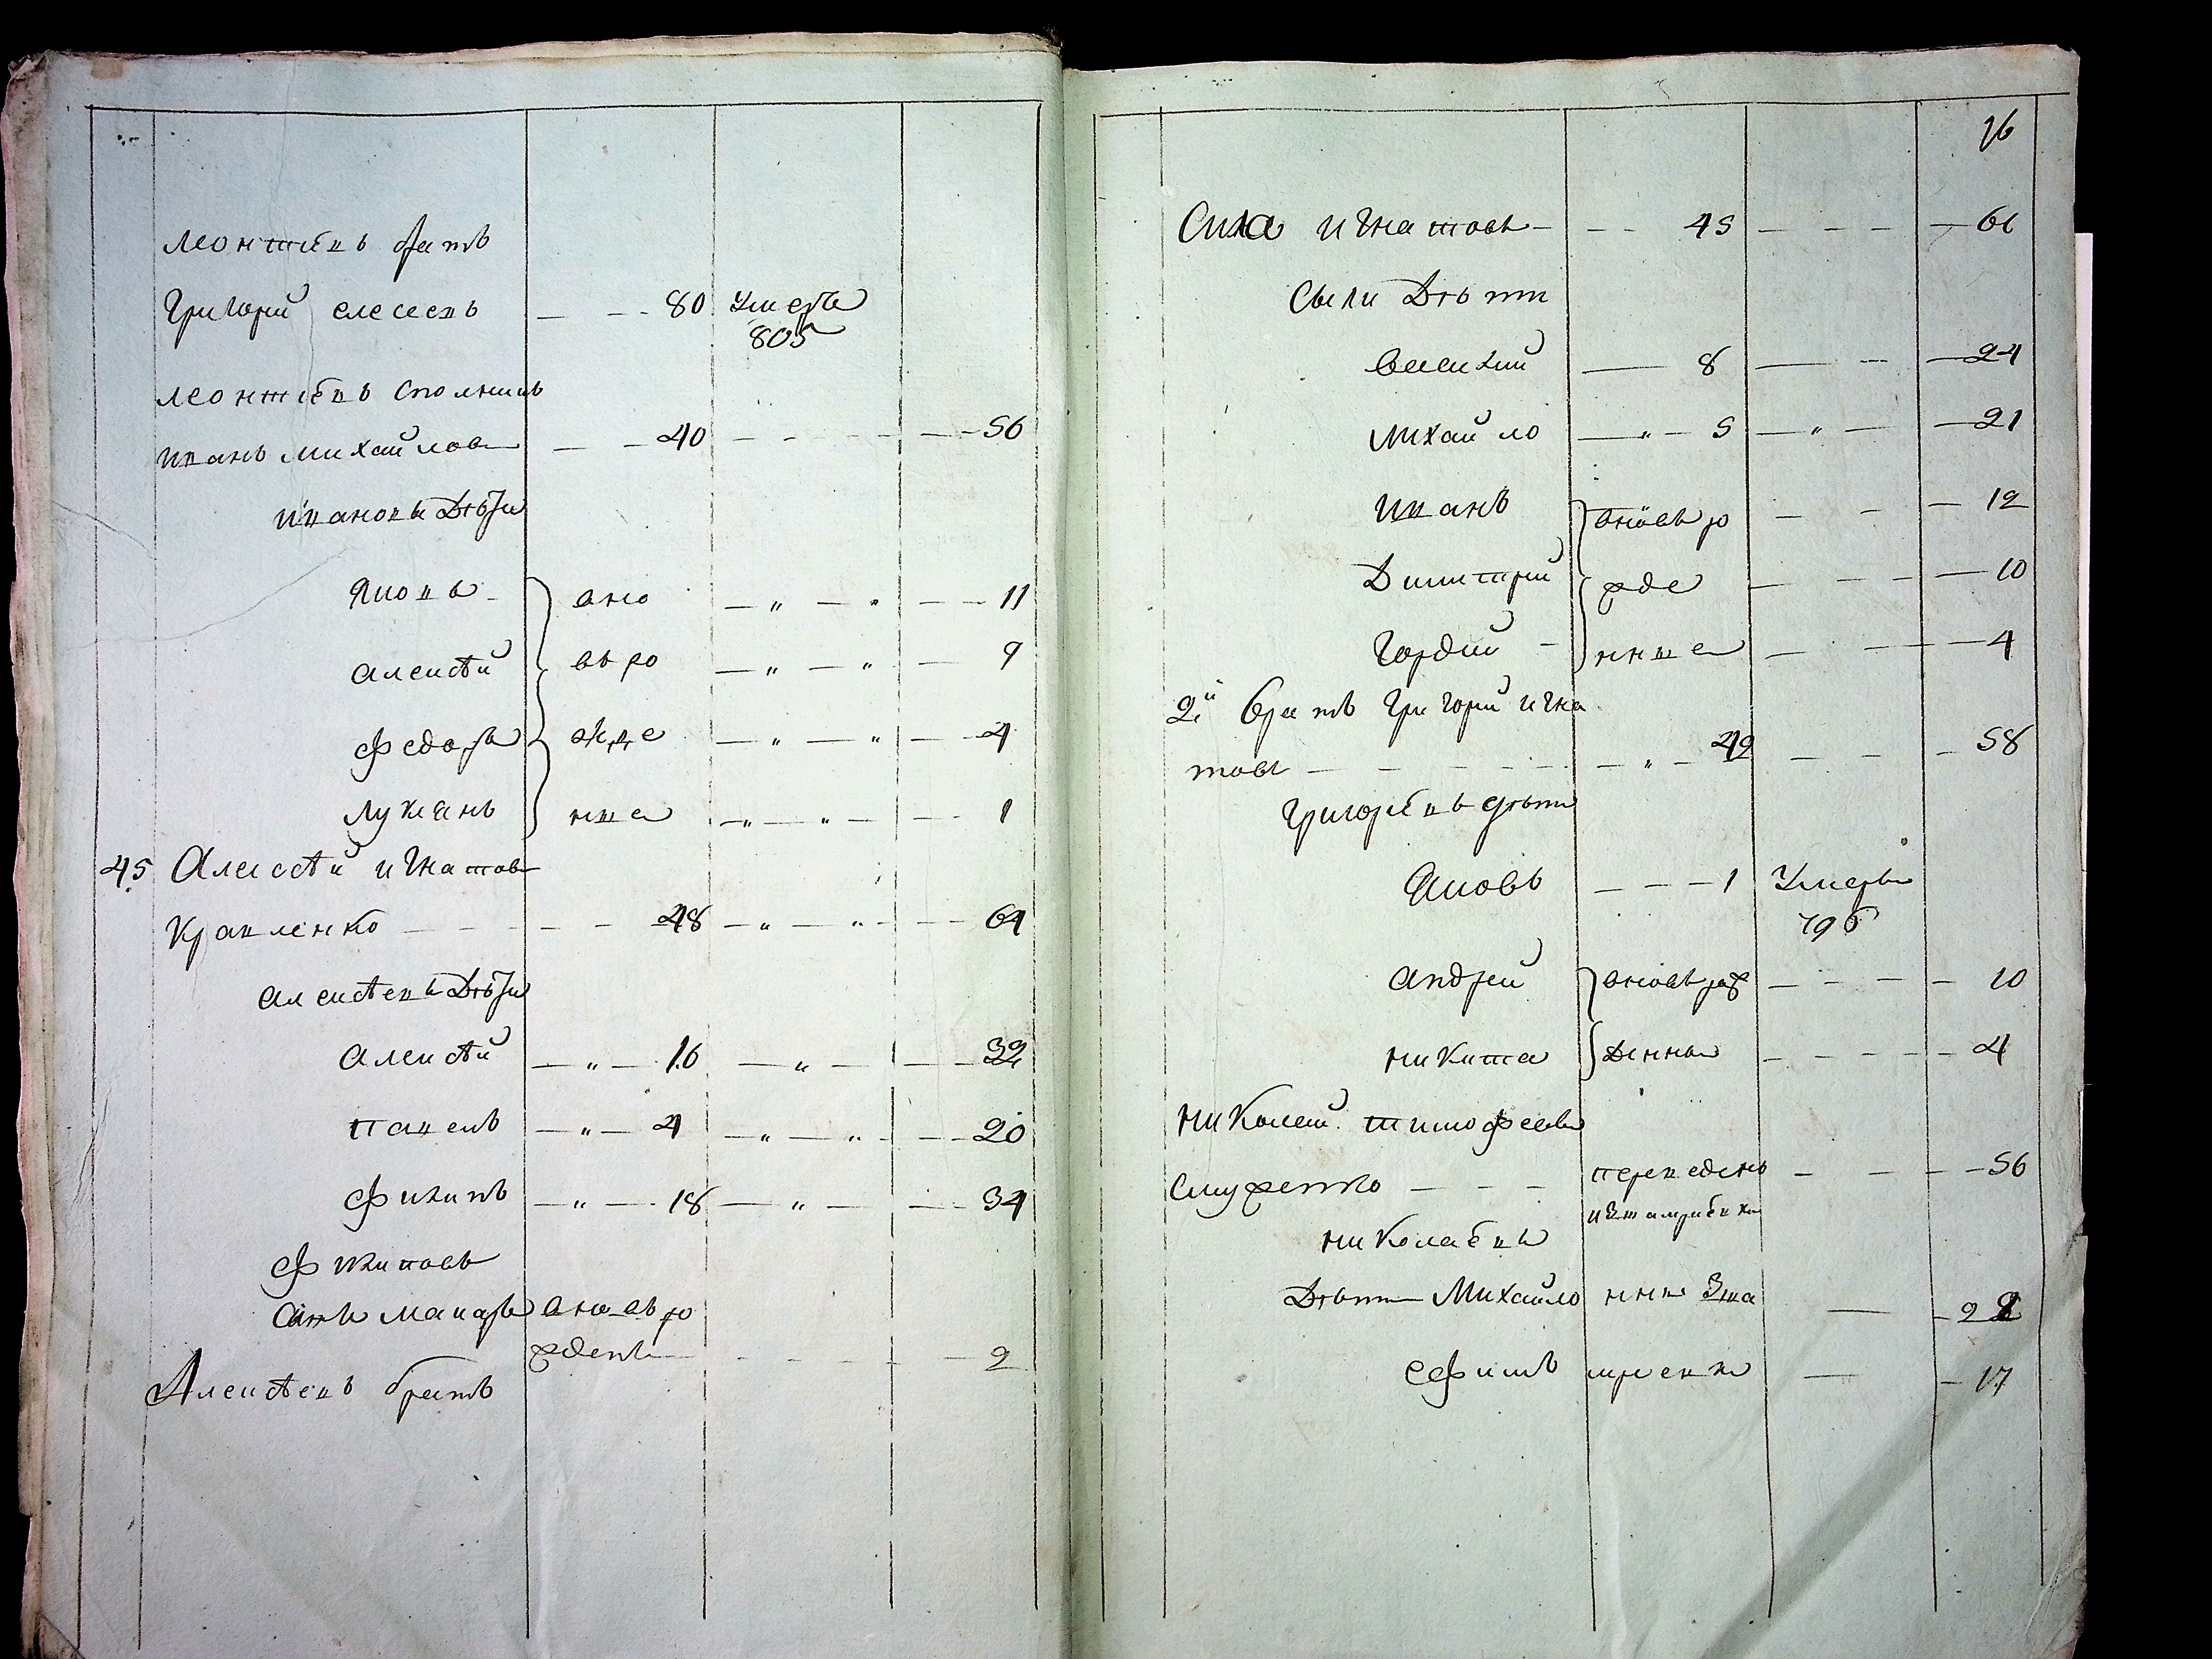 леонтиевъ братъ
Григорий елесеевъ — — 80 умеръ
805
леонтиевъ
иванъ михайловъ — — 40 — — — 56
ивановы дѣти
яковъ вно — „ — „ — — 11
алексѣй вь ро — „ — „ — 9
федоръ жде — „ — „ — 4
лукянъ нне — „ — „ — — 1
45 Алексѣй игнатовъ
кравленко — — — — — 48 — „ — „ — — 64
алексѣевы дѣти
алексѣй — „ — 16 — „ — — 32
павелъ — „ — 4 — „ — „ — — 20
филипъ — „ — 18 — „ — — 34
филиповъ
сынъ макаръ вновь ро
жденъ — — — — 9
Алексѣевъ братъ
16
Сила игнатовъ — — — 45 — — — — 61
Сылы дѣти
василий — 8 — — — 24
михайло — „ — 5 — „ — — 21
иванъ вновь ро — — — 12
димитрий жде — — — — 10
гордий — нне — — — 4
2й братъ григорий игна
товъ — — — — — — „ — 42 — — — 58
григориевы дѣти
яковъ — — — 1 умеръ
796
андрей вновь рож — — — — 10
никита денны — — — — 4
николай тимофеевъ
переведенъ — — — 56
николаевы
дѣти михайло — 22
ефимъ — — 17